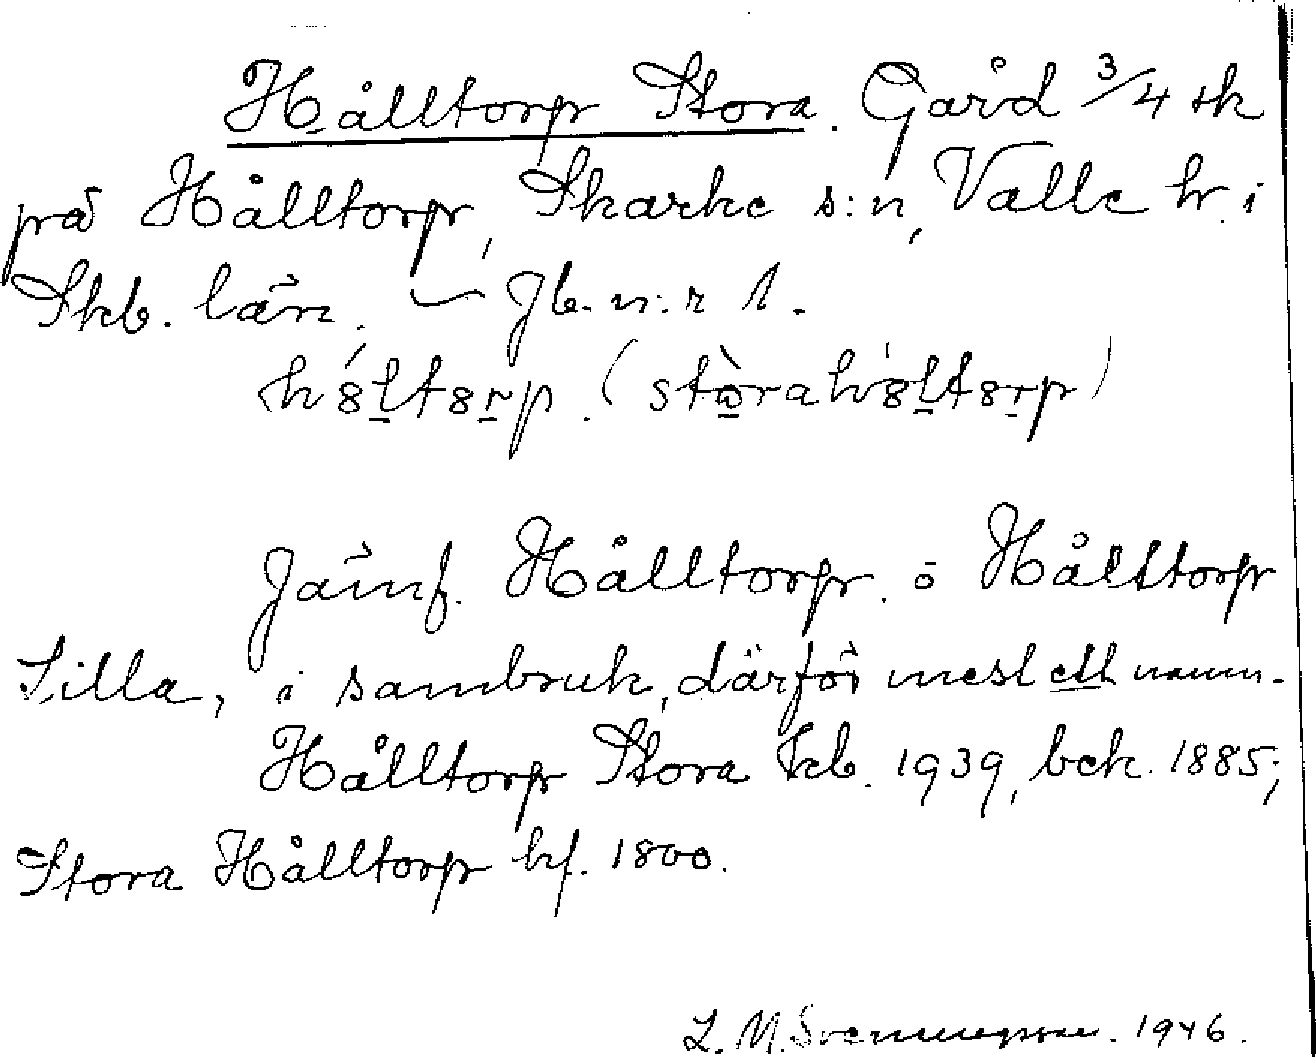 Hålltorp Stora. Gård 3/4 sk
på Hålltorp, Skarke s:n, Valle hr. i
Skb. län. — Jb. n:r 1.
hóltorp. (stòrahóltorp)
Jämf. Hålltorp. o Hålltorp
Lilla, i sambruk, därför mest ett namn.
Hålltorp Stora kb. 1939, bek. 1885;
Stora Hålltorp hf. 1800.
L. M. Svenungsson. 1946.